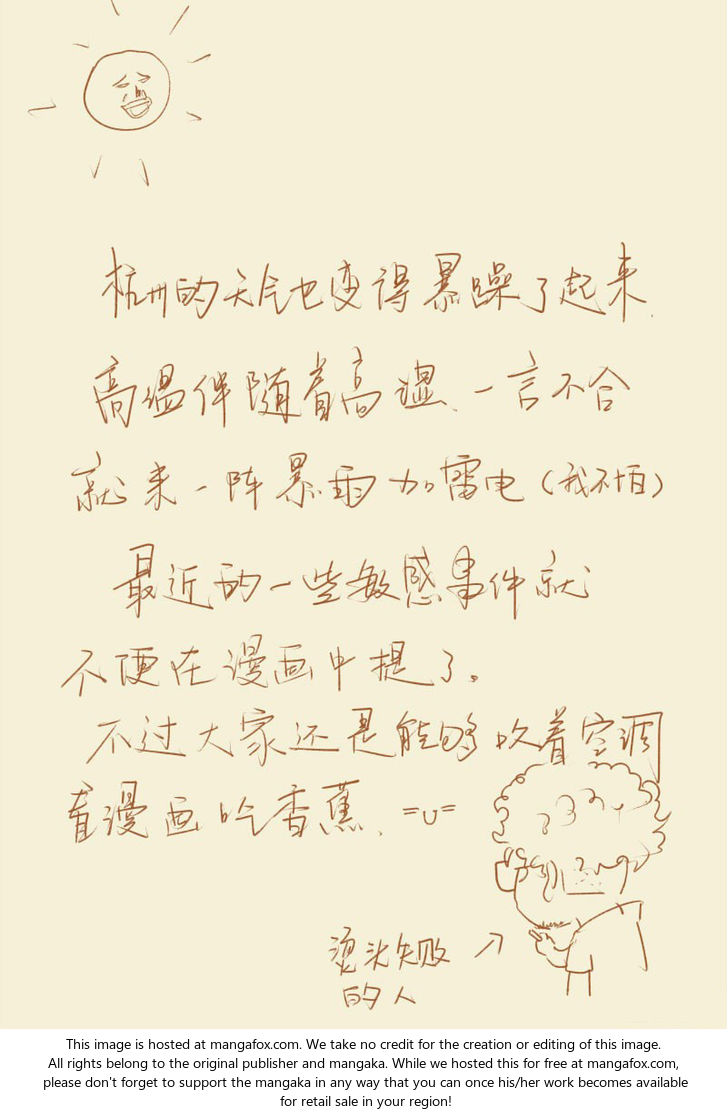 杭州的天气也变得暴躁了起来.
高温伴随着高湿、一言不合
就来一阵暴雨加雷电（我不怕）
最近的一些敏感事件就
不便在漫画中提了。
不过大家还是能够吹着空调
看漫画吃香蕉、=u=
烫头失败
的人
This image is hosted at mangafox.com. We take no credit for the creation or editing of this image.
All rights belong to the original publisher and mangaka. While we hosted this for free at mangafox.com,
please don't forget to support the mangaka in any way that you can once his/her work becomes available
for retail sale in your region!